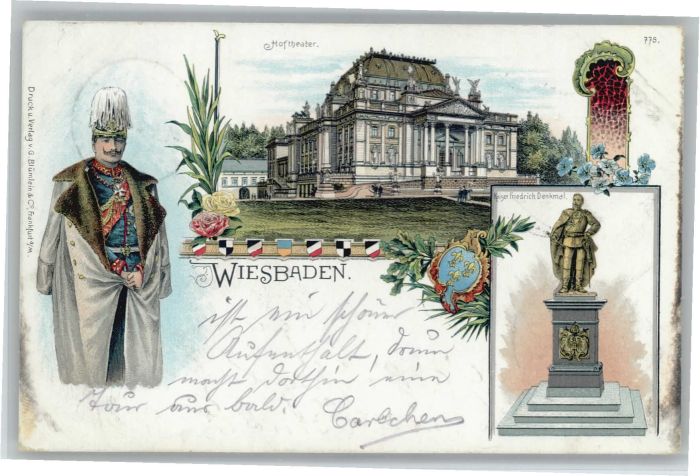 Hoftheater.
775.
Druck u. Verlag v. G. Blümlein & Co, Frankfurt a/M.
Kaiser Friedrich Denkmal.
WIESBADEN.
ist ein schöner
Aufenthalt, drum
macht dorthin eine
Tour aus bald. Carlchen